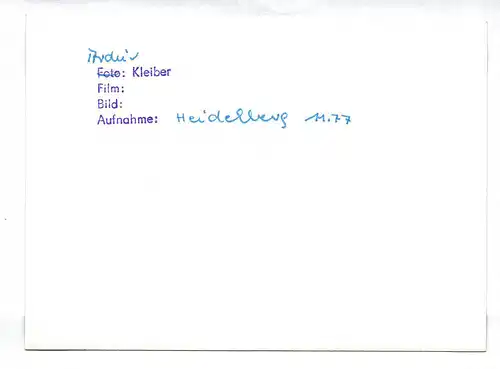 Archiv
Foto: Kleiber
Film:
Bild:
Aufnahme: Heidelberg 11.77